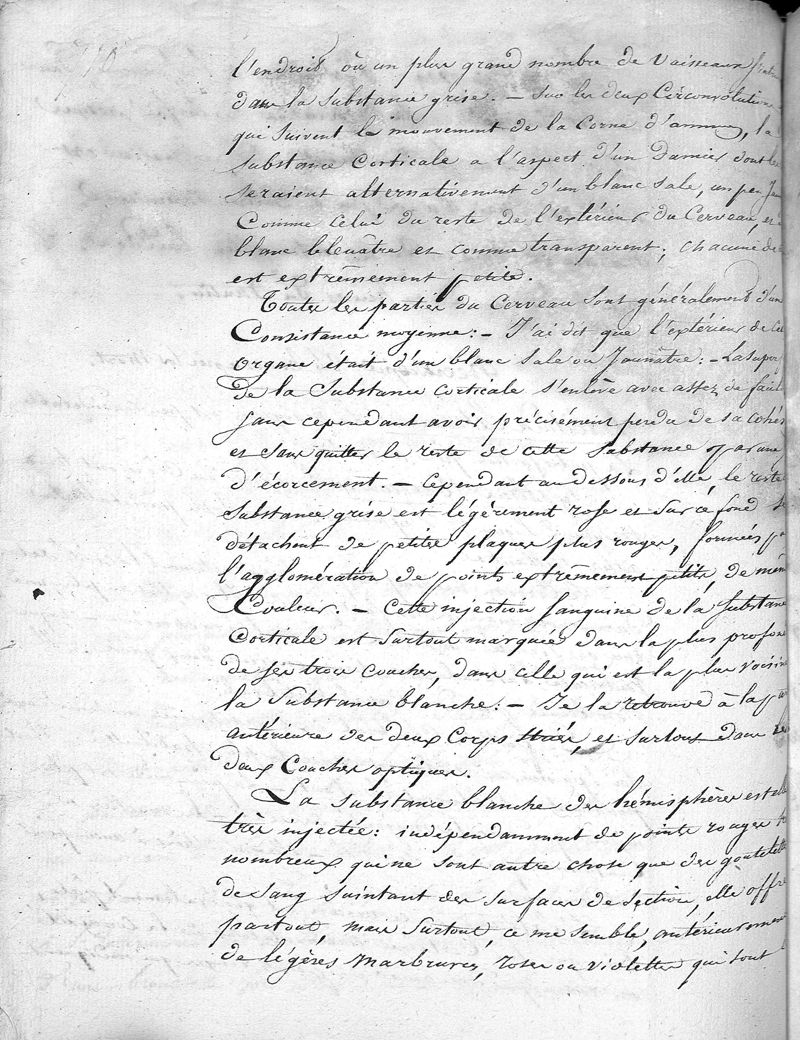 l'endroit où un plus grand nombre de Vaisseaux
dans la substance grise. — Sur les deux Circonvolutions
qui suivent le mouvement de la Corne d'ammon, la
substance Corticale a l'aspect d'un Damier dont les
seraient alternativement d'un blanc sale, un peu
Comme celui du reste de l'extérieur du Cerveau, et
blanc bleuâtre et comme transparent; chacune de
est extrêmement petite.
Toutes les parties du Cerveau sont généralement d'un
Consistance moyenne: — J'ai dit que l'extérieur de Ce
Organe était d'un blanc sale ou Jaunâtre: — La super
De la Substance corticale s'enlève avec assez de facil
sans cependant avoir précisément perdu de sa cohés
et sans quitter le reste de cette substance par une
d'écorcement. — Cependant au dessous d'elle le reste
substance grise est légèrement rose et sur ce fond se
détachent de petites plaques plus rouges, formées pa
l'agglomération de points extrêmement petits, de mêm
Couleur. — Cette injection sanguine de la substance
Corticale est surtout marquée dans la plus profon
de ses trois couches, dans celle qui est la plus voisin
la Substance blanche: — Je la retrouve à la pa
antérieure des deux Corps striés, et surtout dans les
deux Couches optiques.
La substance blanche des hémisphères est elle
très injectée: indépendamment de points rouges tr
nombreux qui ne sont autre chose que des goutelette
de sang suintant des surfaces de section, elle offre
partout, mais surtout, ce me semble, antérieurement
de légères marbrures, roses ou violettes qui sont